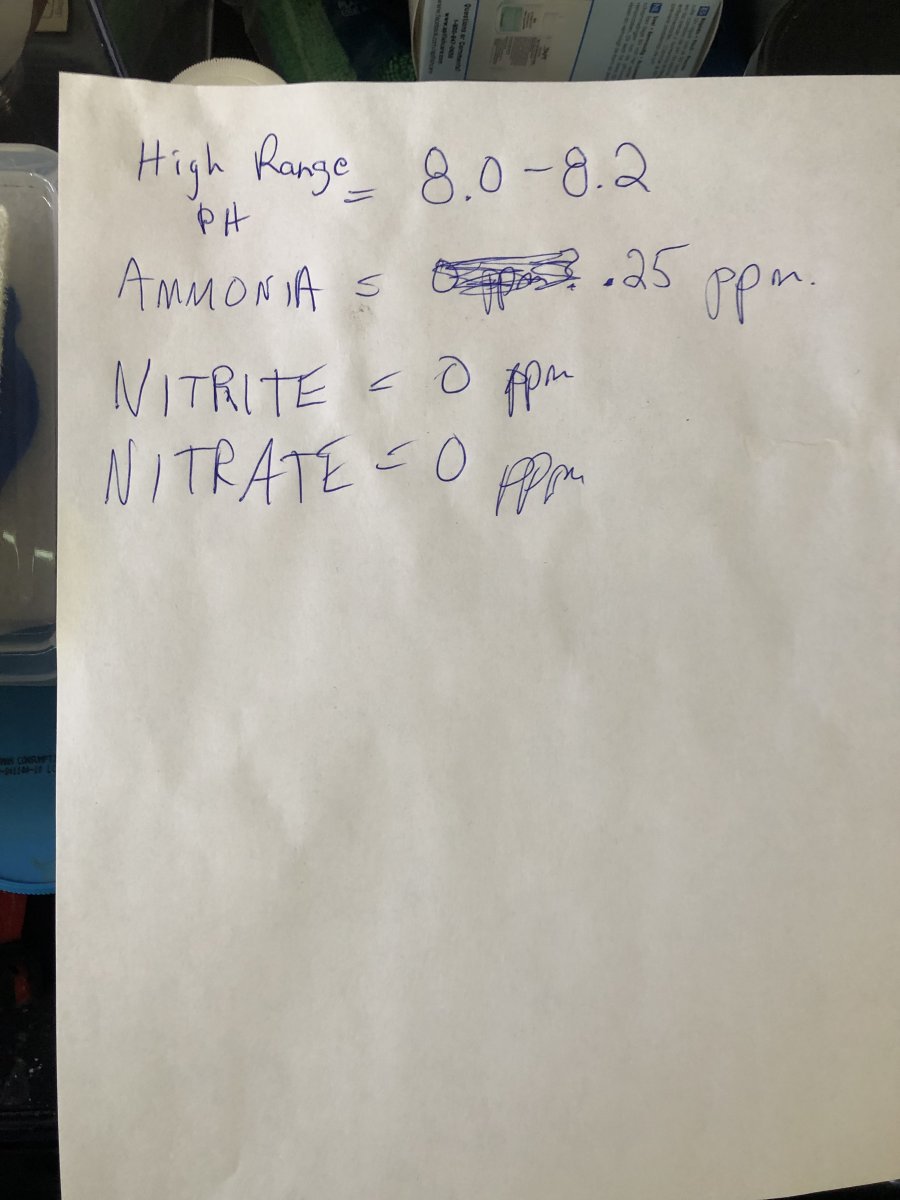 Questions or Comments?
High Range = 8.0-8.2
PH
AMMONIA = .25 ppm.
NITRITE = 0 ppm
NITRATE = 0 ppm